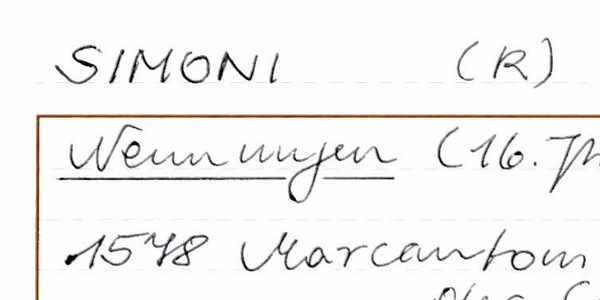 SIMONI (R)
Nennungen (16. Jh
1578 Marcantoni